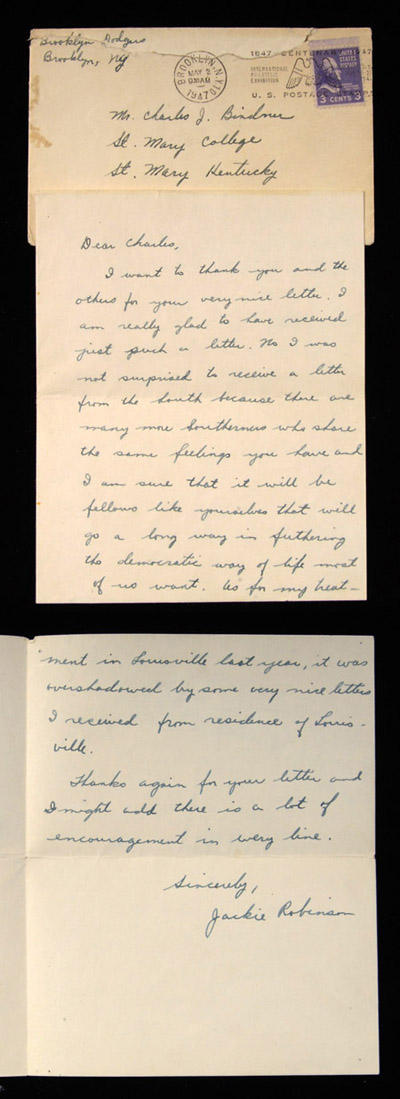 Brooklyn Dodgers
Brooklyn, NY
BROOKLYN, N.Y.
MAY 2
930AM
1947
1847 CENTENARY
INTERNATIONAL
PHILATELIC
EXHIBITION
U. S. POSTAGE
UNITED STATES POSTAGE
3 CENTS 3
Mr. Charles J. Bindner
St. Mary College
St. Mary Kentucky
Dear Charles,
I want to thank you and the
others for your very nice letter. I
am really glad to have received
just such a letter. No I was
not surprised to receive a letter
from the South because there are
many more Southerners who share
the same feelings you have and
I am sure that it will be
fellows like yourselves that will
go a long way in futhering
the democratic way of life most
of us want. As for my treat-
ment in Louisville last year, it was
overshadowed by some very nice letters
I received from residence of Louis-
ville.
Thanks again for your letter and
I might add there is a lot of
encouragement in every line.
Sincerely,
Jackie Robinson